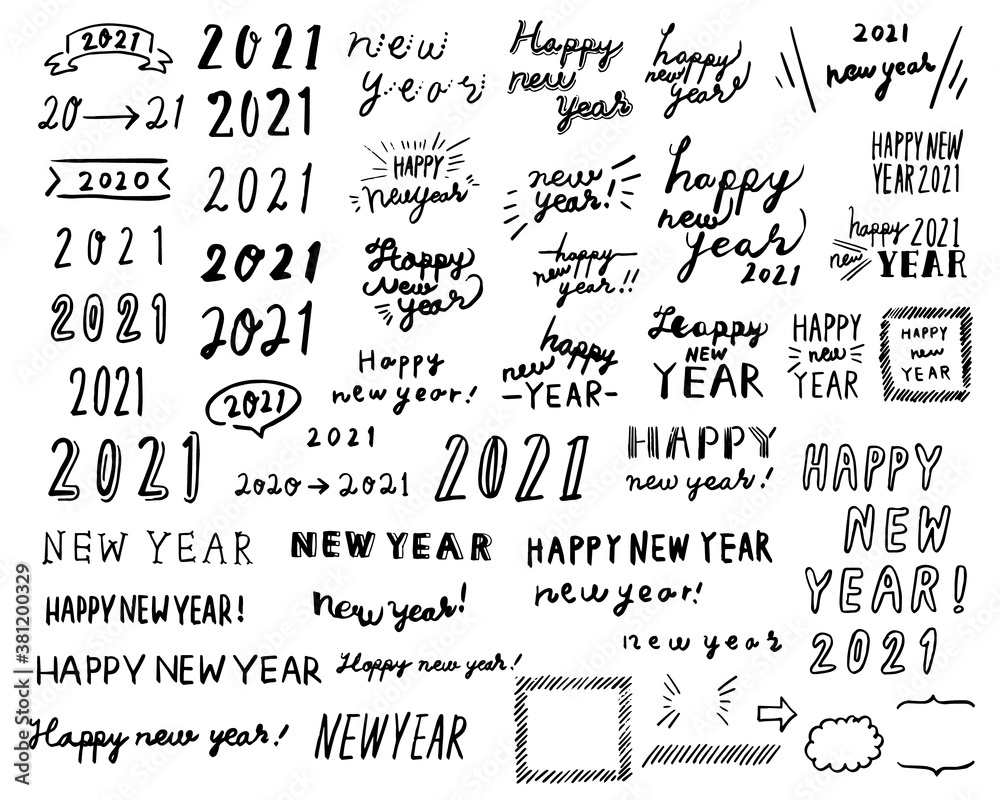 2021
20→21
2020
2021
2021
2021
2021
2021
2021
2021
2021
2021
2021
2021
2020→2021
new
year
Happy
new
Year
happy
new
year
2021
new year
HAPPY
new year
new
year!
happy
new
year
2021
HAPPY NEW
YEAR 2021
happy 2021
new YEAR
Happy
New
year
happy
new
year!!
Happy
new year!
happy
new
-YEAR-
Happy
NEW
YEAR
HAPPY
new
YEAR
HAPPY
new
YEAR
2021
HAPPY
new year!
HAPPY
NEW
YEAR!
2021
NEW YEAR
NEW YEAR
HAPPY NEW YEAR
HAPPY NEW YEAR!
new year!
new year!
HAPPY NEW YEAR
Happy new year!
new year
Happy new year!
NEW YEAR
Adobe Stock | #381200329